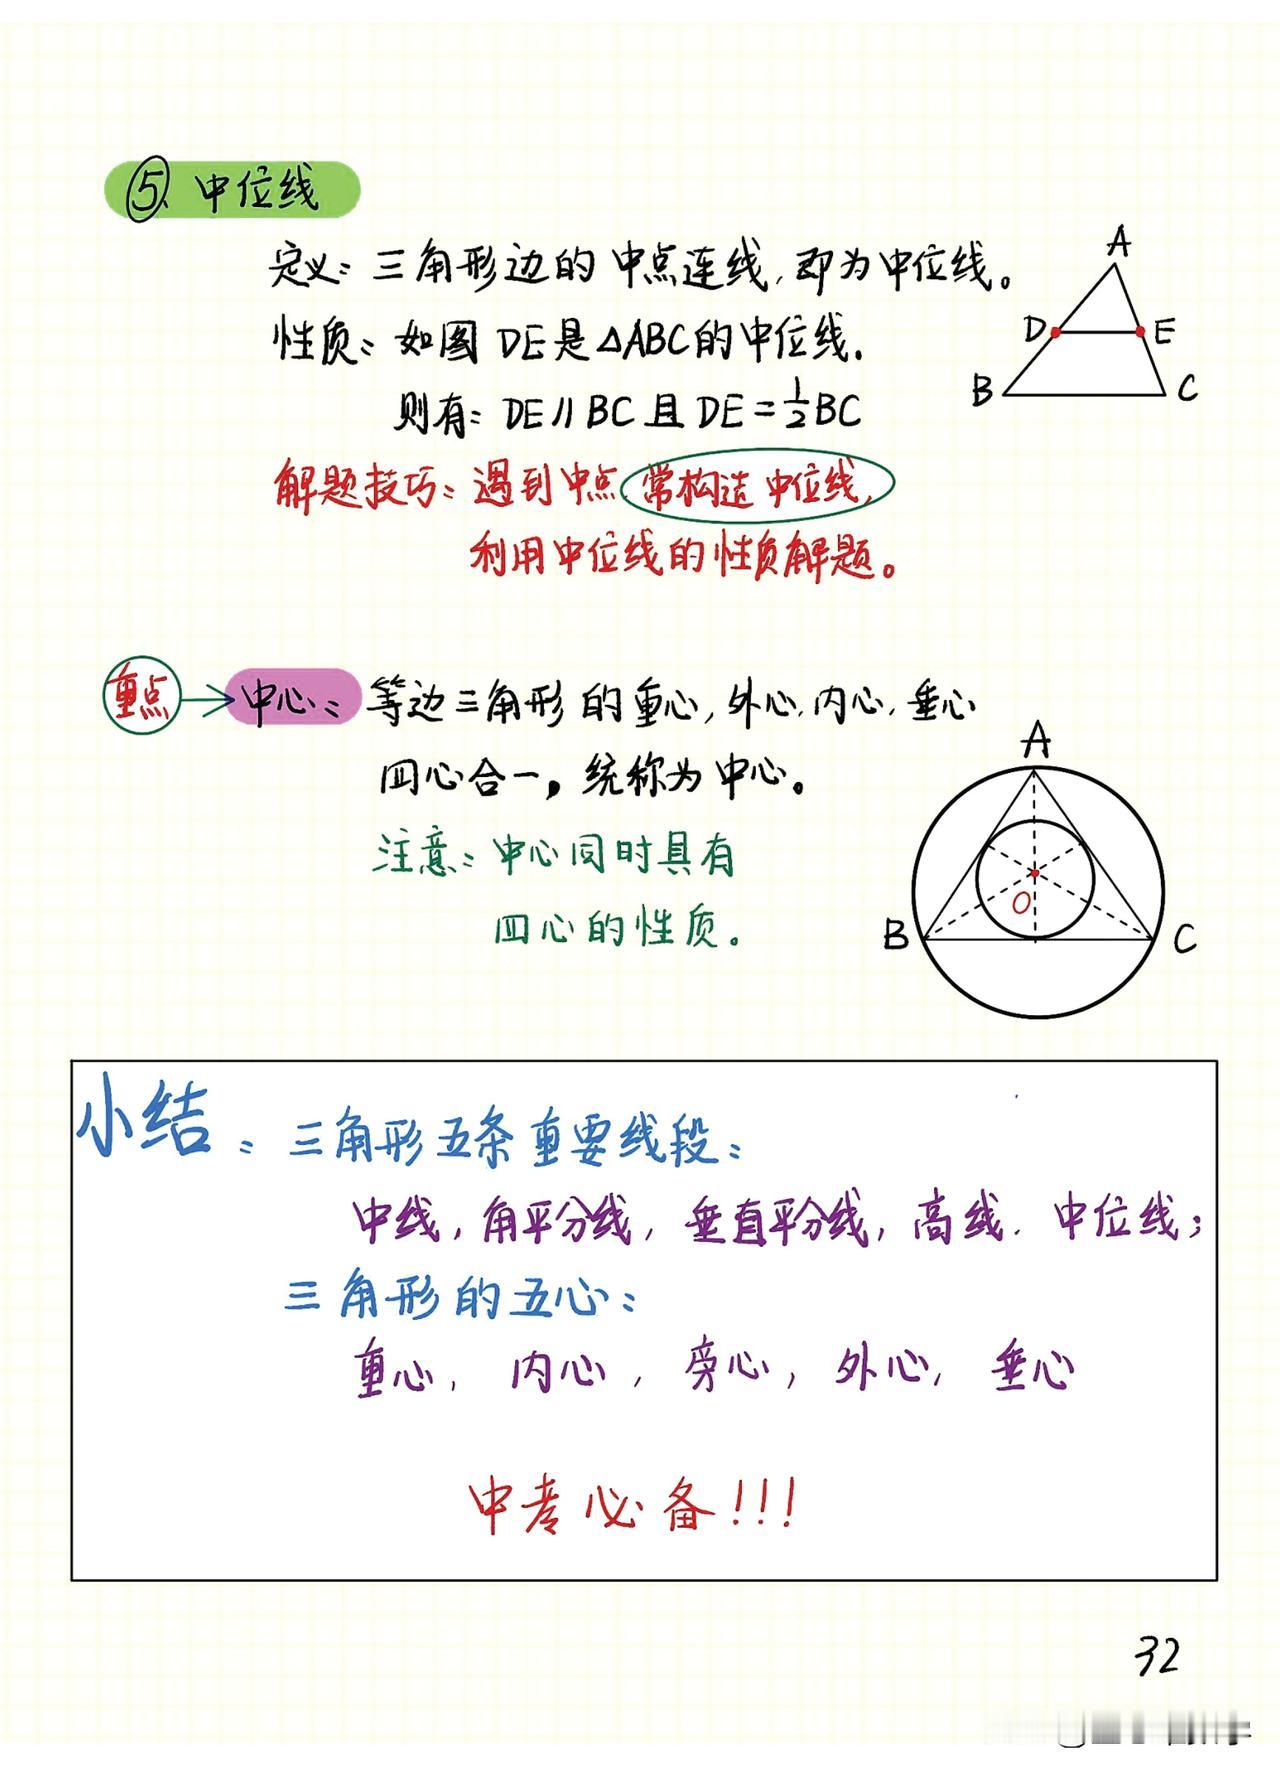 ⑤、中位线
定义：三角形边的中点连线，即为中位线。
性质：如图DE是△ABC的中位线.
则有：DE∥BC且DE=½BC
解题技巧：遇到中点，常构造中位线，
利用中位线的性质解题。
A
D
E
B
C
重点→中心：等边三角形的重心，外心，内心，垂心
四心合一，统称为中心。
注意：中心同时具有
四心的性质.
A
O
B
C
小结：三角形五条重要线段：
中线，角平分线，垂直平分线，高线．中位线；
三角形的五心：
重心，内心，旁心，外心，垂心
中考必备!!!
32